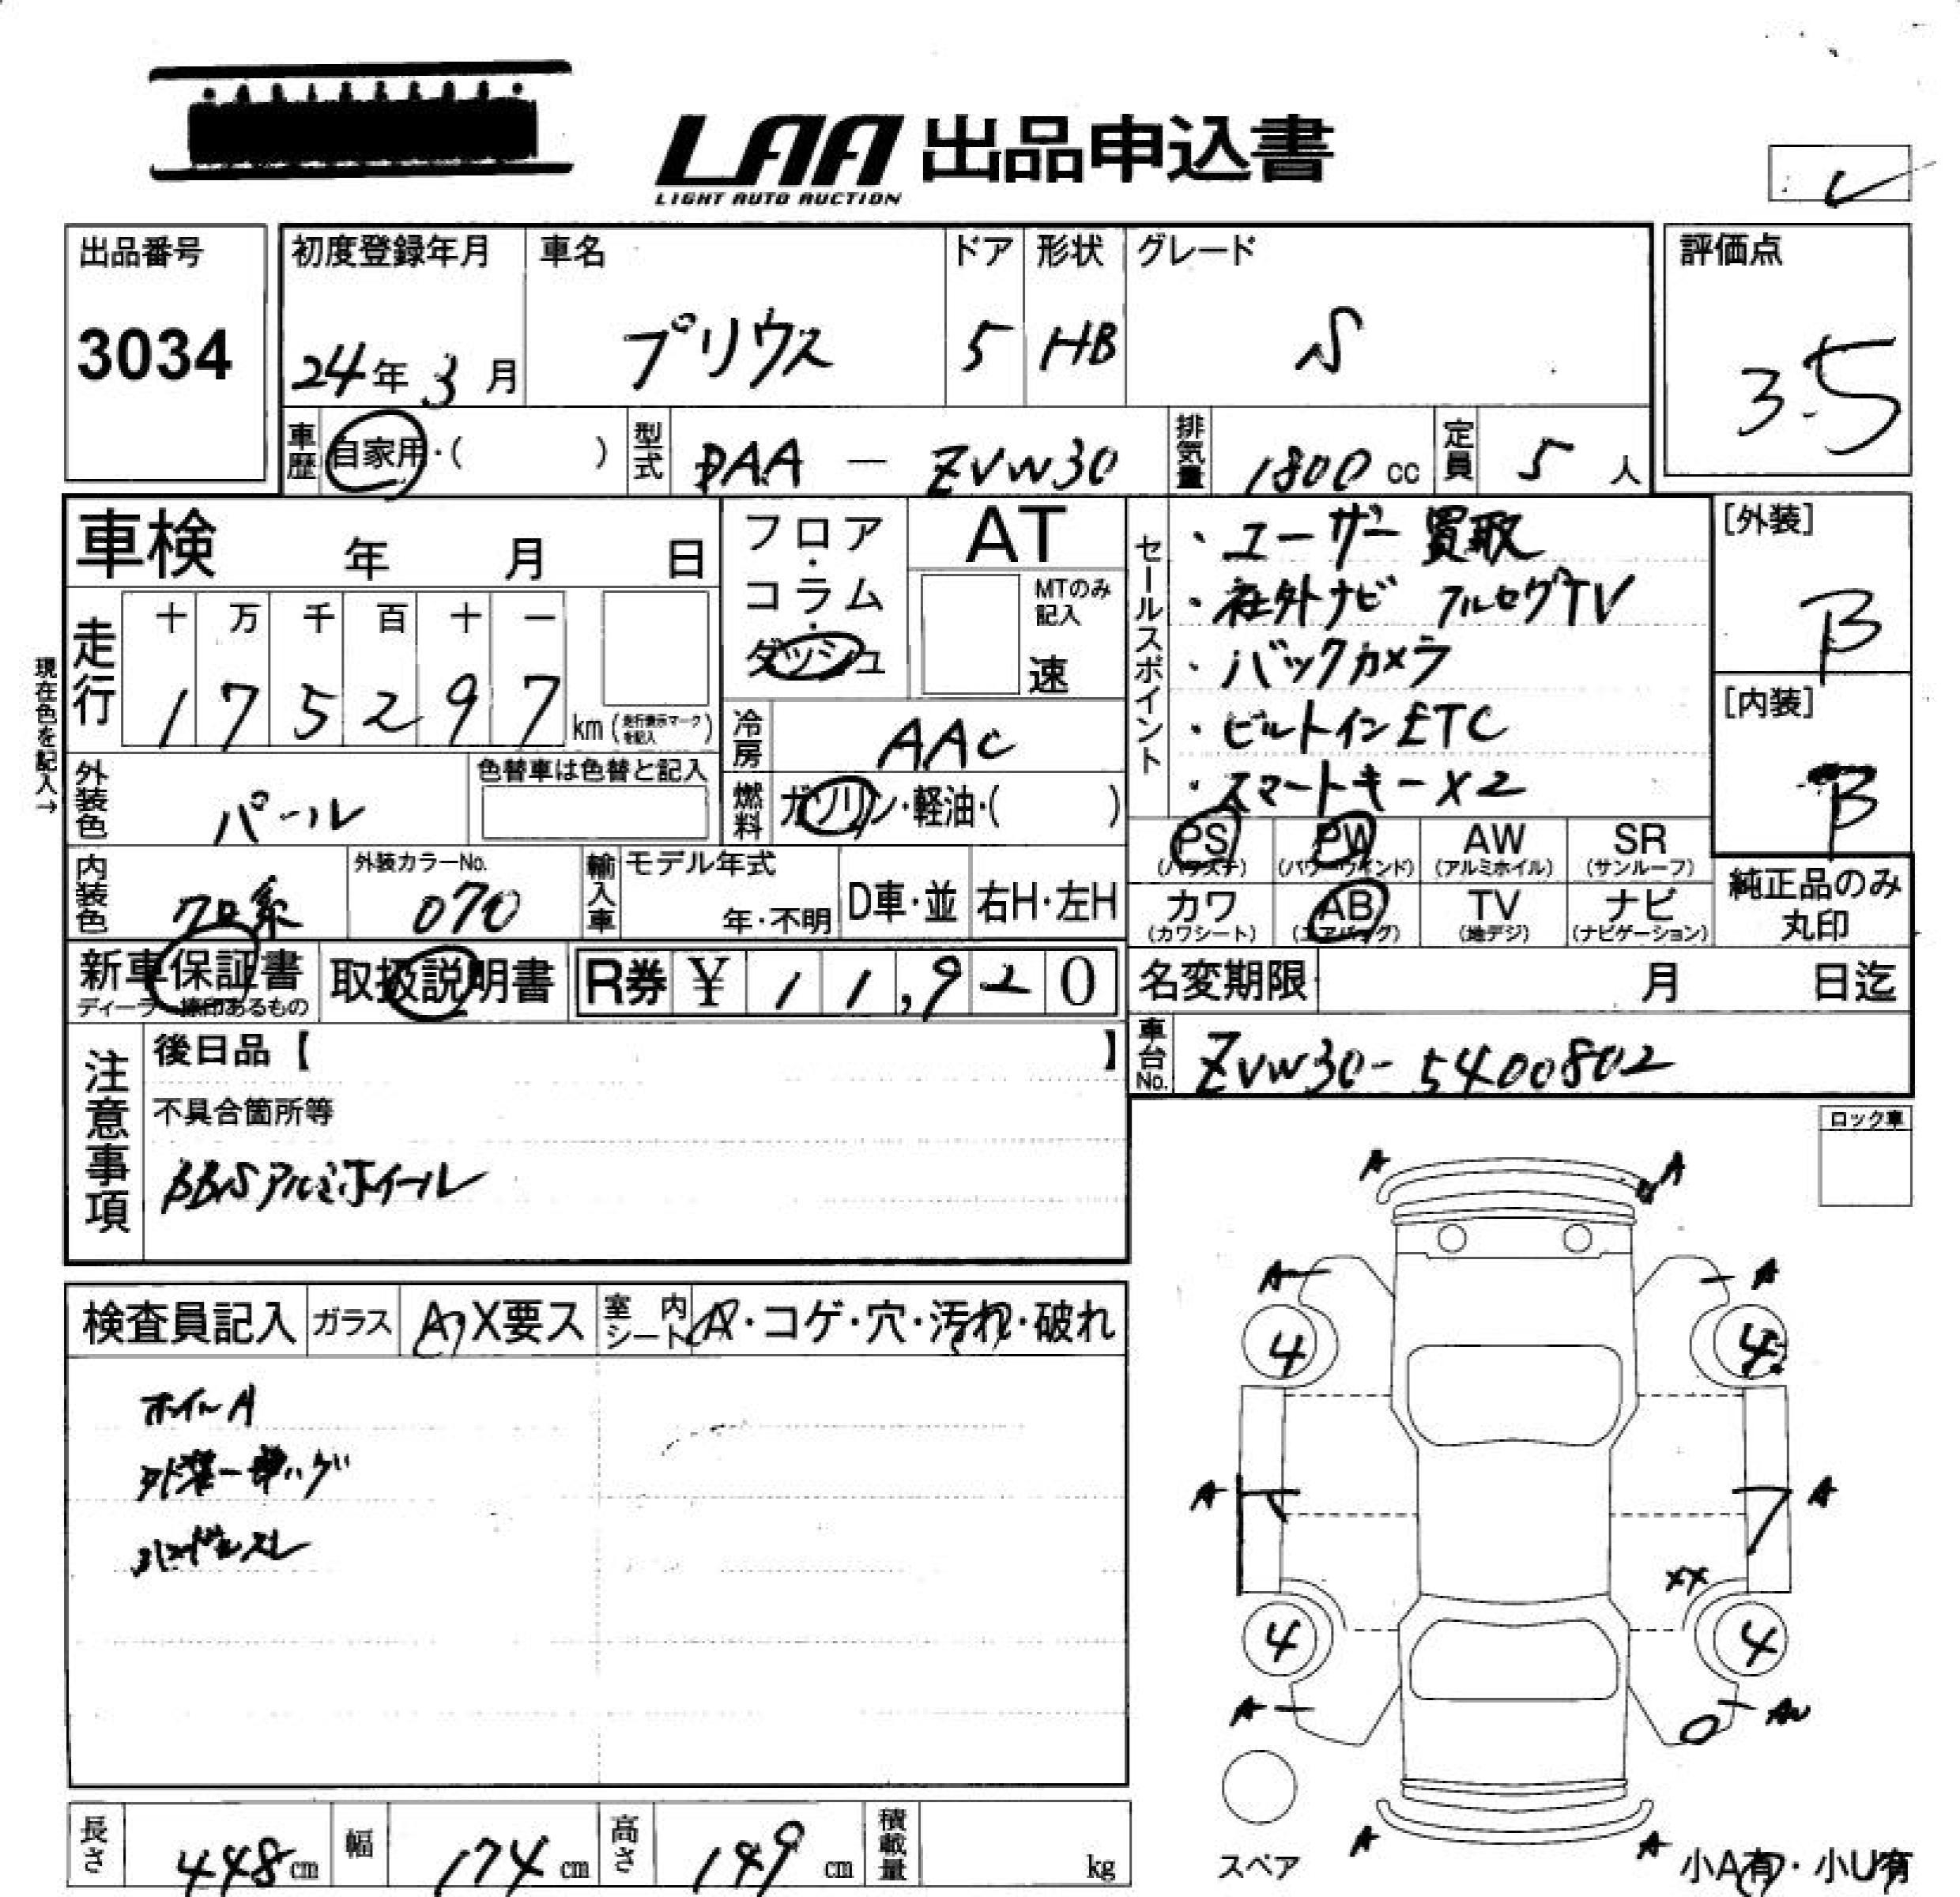 LAA 出品申込書
LIGHT AUTO AUCTION
出品番号
3034
初度登録年月
24年3月
車名
プリウス
ドア
5
形状
HB
グレード
S
評価点
3.5
車歴 自家用・( )
型式 DAA - ZVW30
排気量 1800 cc
定員 5 人
車検 年 月 日
走行
十 万 千 百 十 一
1 7 5 2 9 7 km (走行表示マークを記入)
現在色を記入→
フロア・コラム・ダッシュ
AT
MTのみ記入
速
冷房 AAC
燃料 ガソリン・軽油・( )
外装色 パール
色替車は色替と記入
内装色 クロ系
外装カラーNo. 070
輸入車 モデル年式 年・不明 D車・並 右H・左H
セールスポイント
・ユーザー買取
・社外ナビ フルセグTV
・バックカメラ
・ビルトインETC
・スマートキー×2
[外装]
B
[内装]
B
PS PW AW SR
(パワステ) (パワーウインド) (アルミホイル) (サンルーフ)
カワ AB TV ナビ
(カワシート) (エアバッグ) (地デジ) (ナビゲーション)
純正品のみ丸印
新車保証書
ディーラー捺印あるもの
取扱説明書
R券 ¥ 1 1,9 2 0
名変期限 月 日迄
車台No. ZVW30-5400802
注意事項
後日品【 】
不具合箇所等
BBSアルミホイール
ロック車
検査員記入 ガラス A・X要ス 室内シート A・コゲ・穴・汚れ・破れ
ホイールA
外装一部ハゲ
ハンドルスレ
A A
A A
4 4
A A
XX
4 4
A AU
A A
スペア
小A有・小U有
長さ 448cm
幅 174cm
高さ 149cm
積載量 kg